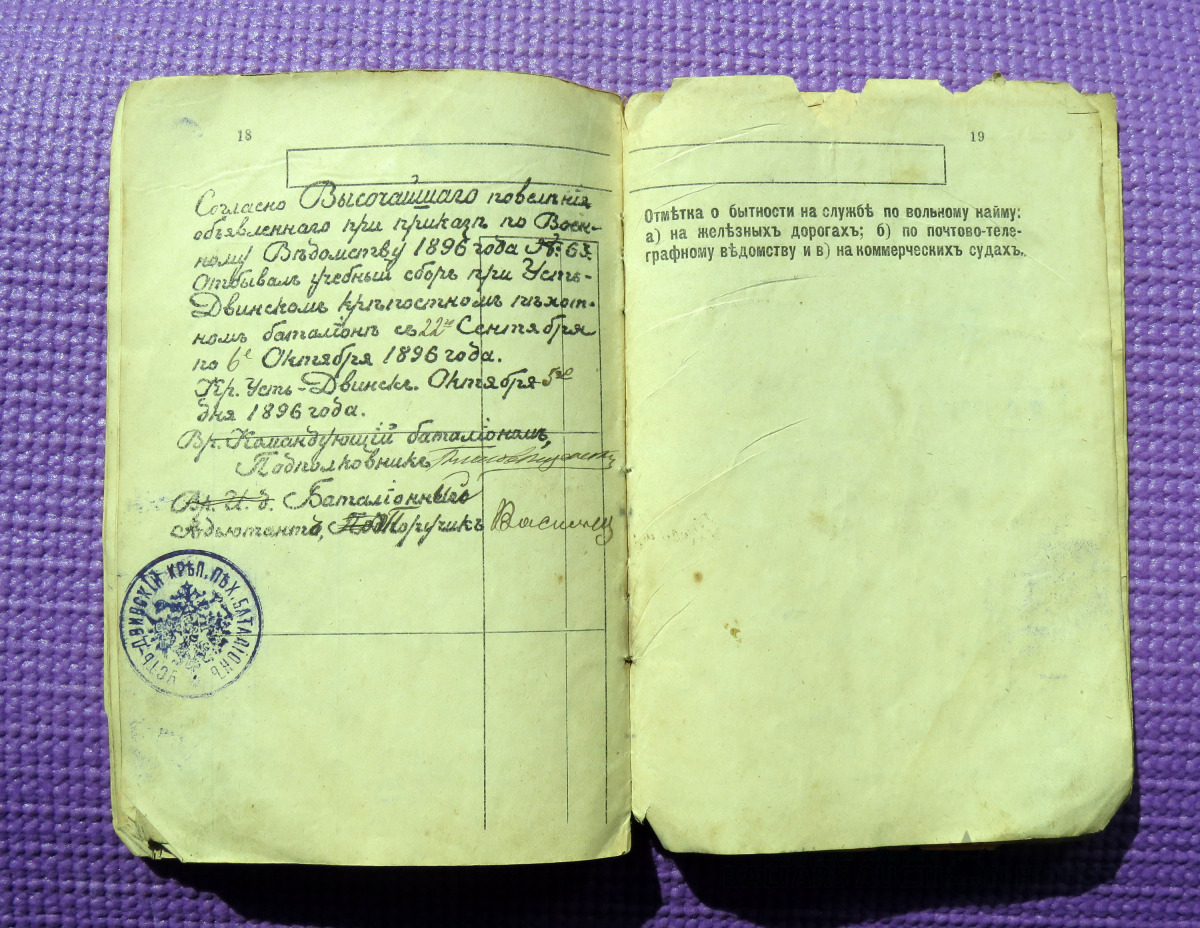 18
Согласно Высочайшаго повелѣнія
объявленнаго при приказѣ по Воен-
ному Вѣдомству 1896 года №: 63.
Отбывалъ учебный сборъ при Усть-
Двинскомъ крѣпостномъ пѣхот-
номъ баталіонѣ съ 22го Сентября
по 6е Октября 1896 года.
Кр. Усть-Двинскъ. Октября 5го
дня 1896 года.
Вр. Командующій баталіономъ,
Подполковникъ
Вр. И. д. Баталіонный
Адъютантъ, Подпоручикъ
УСТЬ-ДВИНСКІЙ КРѢП. ПѢХ. БАТАЛІОНЪ
19
Отмѣтка о бытности на службѣ по вольному найму:
а) на желѣзныхъ дорогахъ; б) по почтово-теле-
графному вѣдомству и в) на коммерческихъ судахъ.